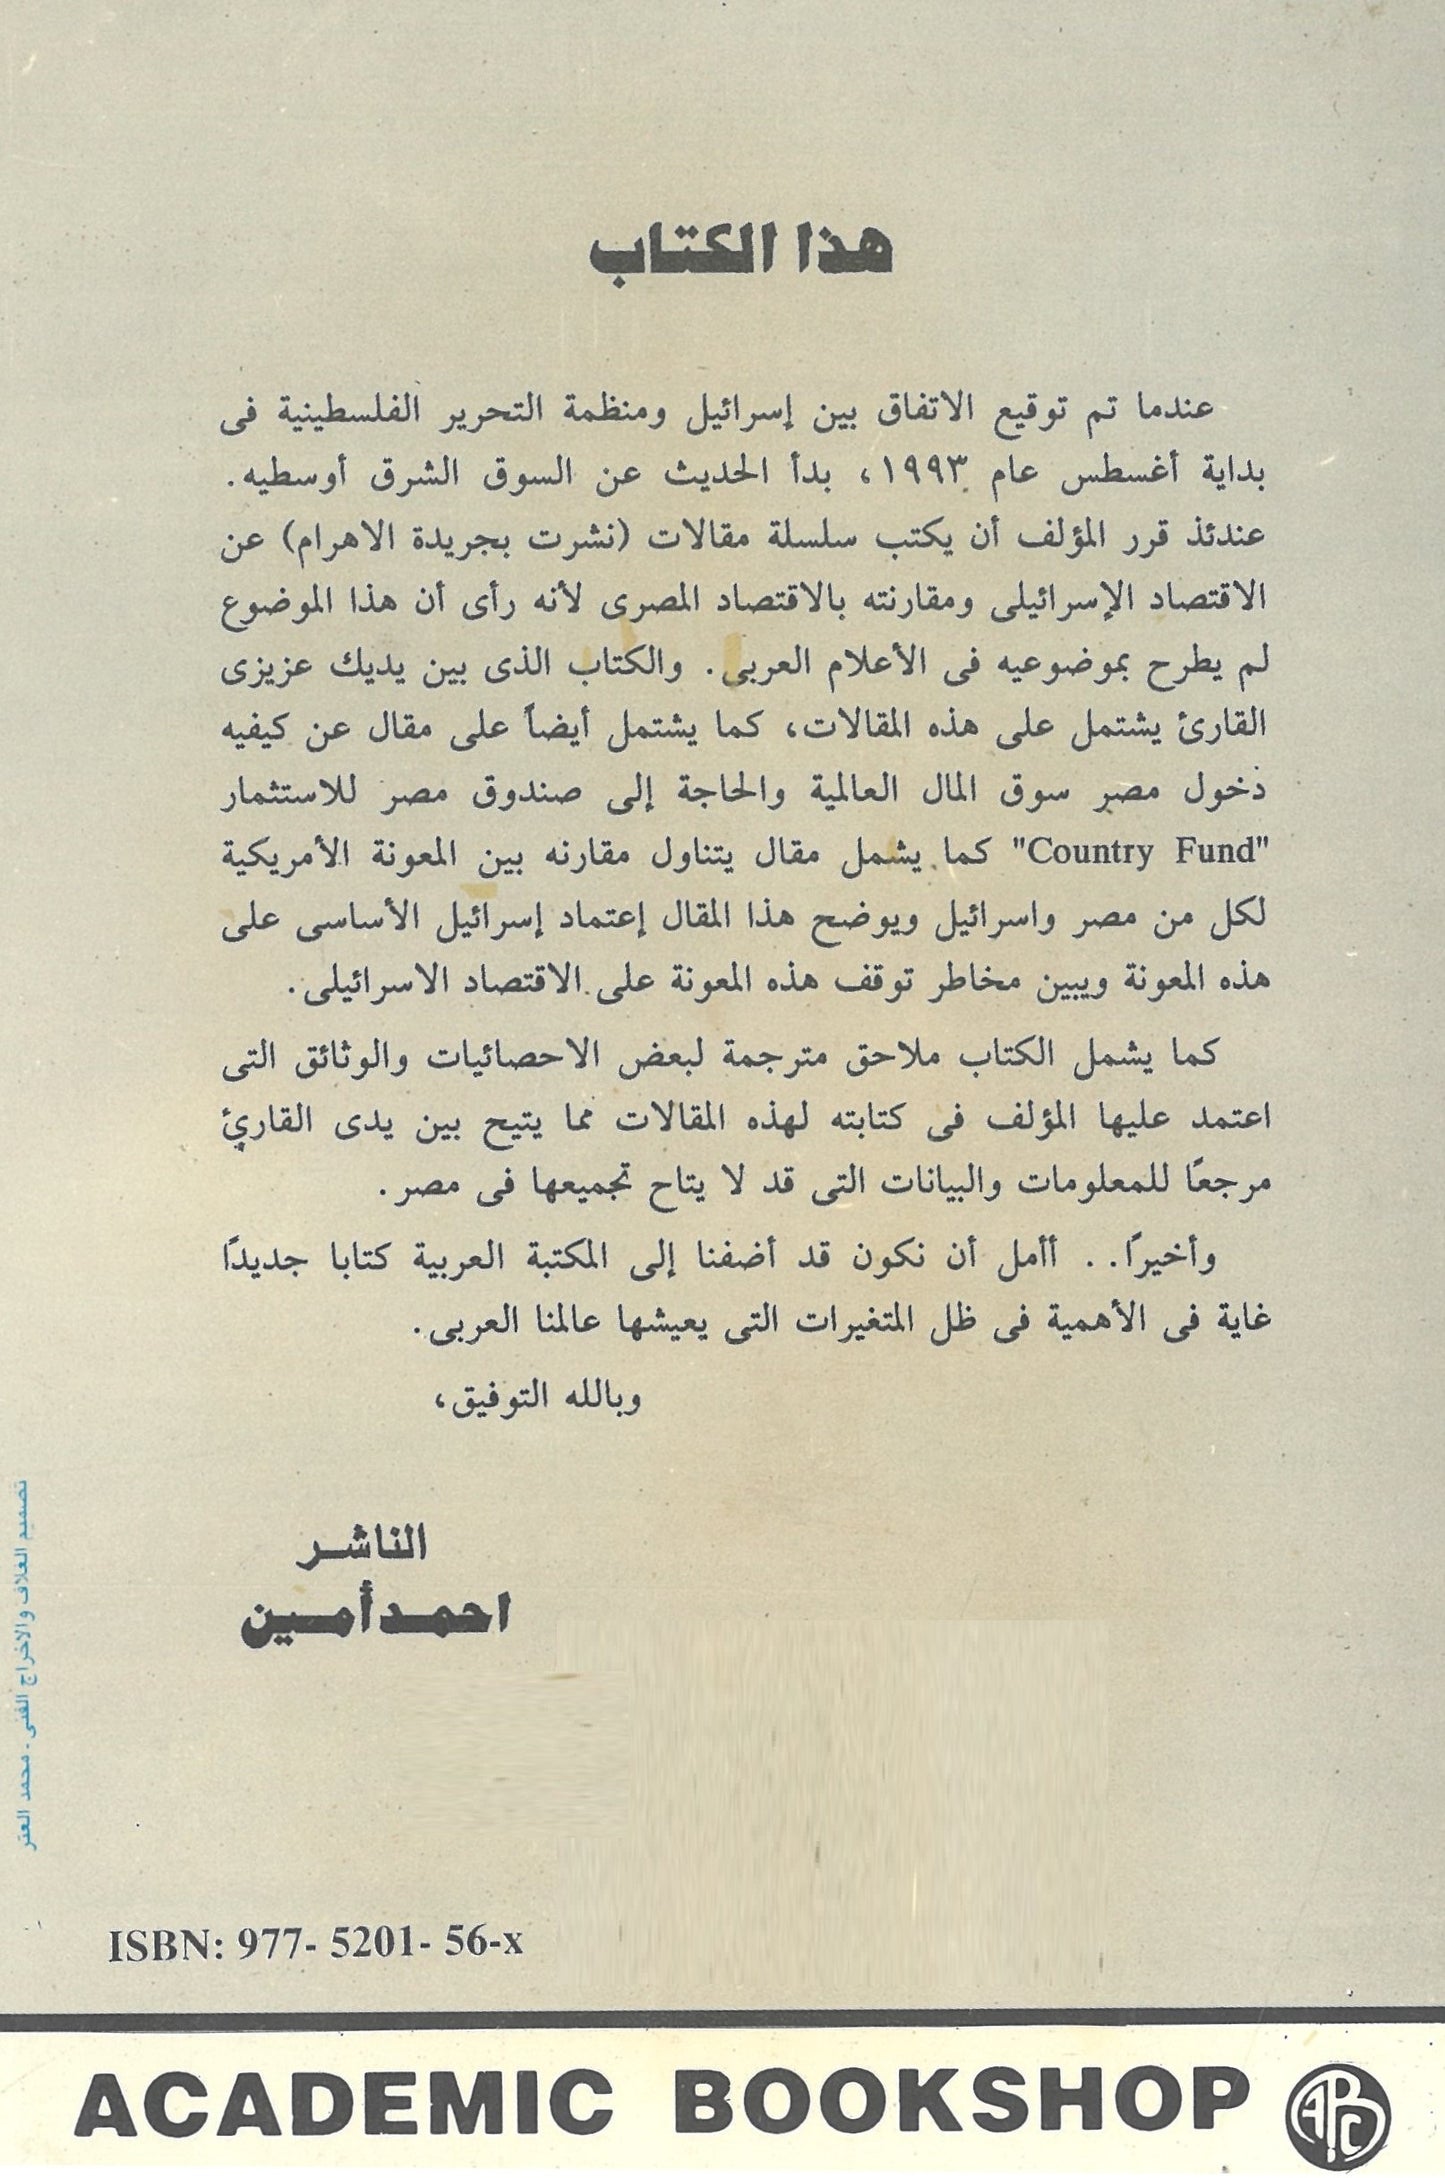 هذا الكتاب
عندما تم توقيع الاتفاق بين إسرائيل ومنظمة التحرير الفلسطينية فى
بداية أغسطس عام ١٩٩٣، بدأ الحديث عن السوق الشرق أوسطيه.
عندئذ قرر المؤلف أن يكتب سلسلة مقالات (نشرت بجريدة الاهرام) عن
الاقتصاد الإسرائيلى ومقارنته بالاقتصاد المصرى لأنه رأى أن هذا الموضوع
لم يطرح بموضوعيه فى الأعلام العربى. والكتاب الذى بين يديك عزيزى
القارئ يشتمل على هذه المقالات، كما يشتمل أيضاً على مقال عن كيفيه
دخول مصر سوق المال العالمية والحاجة إلى صندوق مصر للاستثمار
"Country Fund" كما يشمل مقال يتناول مقارنه بين المعونة الأمريكية
لكل من مصر واسرائيل ويوضح هذا المقال إعتماد إسرائيل الأساسى على
هذه المعونة ويبين مخاطر توقف هذه المعونة على الاقتصاد الاسرائيلى.
كما يشمل الكتاب ملاحق مترجمة لبعض الاحصائيات والوثائق التى
اعتمد عليها المؤلف فى كتابته لهذه المقالات مما يتيح بين يدى القارئ
مرجعًا للمعلومات والبيانات التى قد لا يتاح تجميعها فى مصر.
وأخيرًا.. أأمل أن نكون قد أضفنا إلى المكتبة العربية كتابا جديدًا
غاية فى الأهمية فى ظل المتغيرات التى يعيشها عالمنا العربى.
وبالله التوفيق،
الناشر
احمد أمين
تصميم الغلاف والاخراج الفنى. محمد العتر
ISBN: 977- 5201- 56-x
ACADEMIC BOOKSHOP
ABC